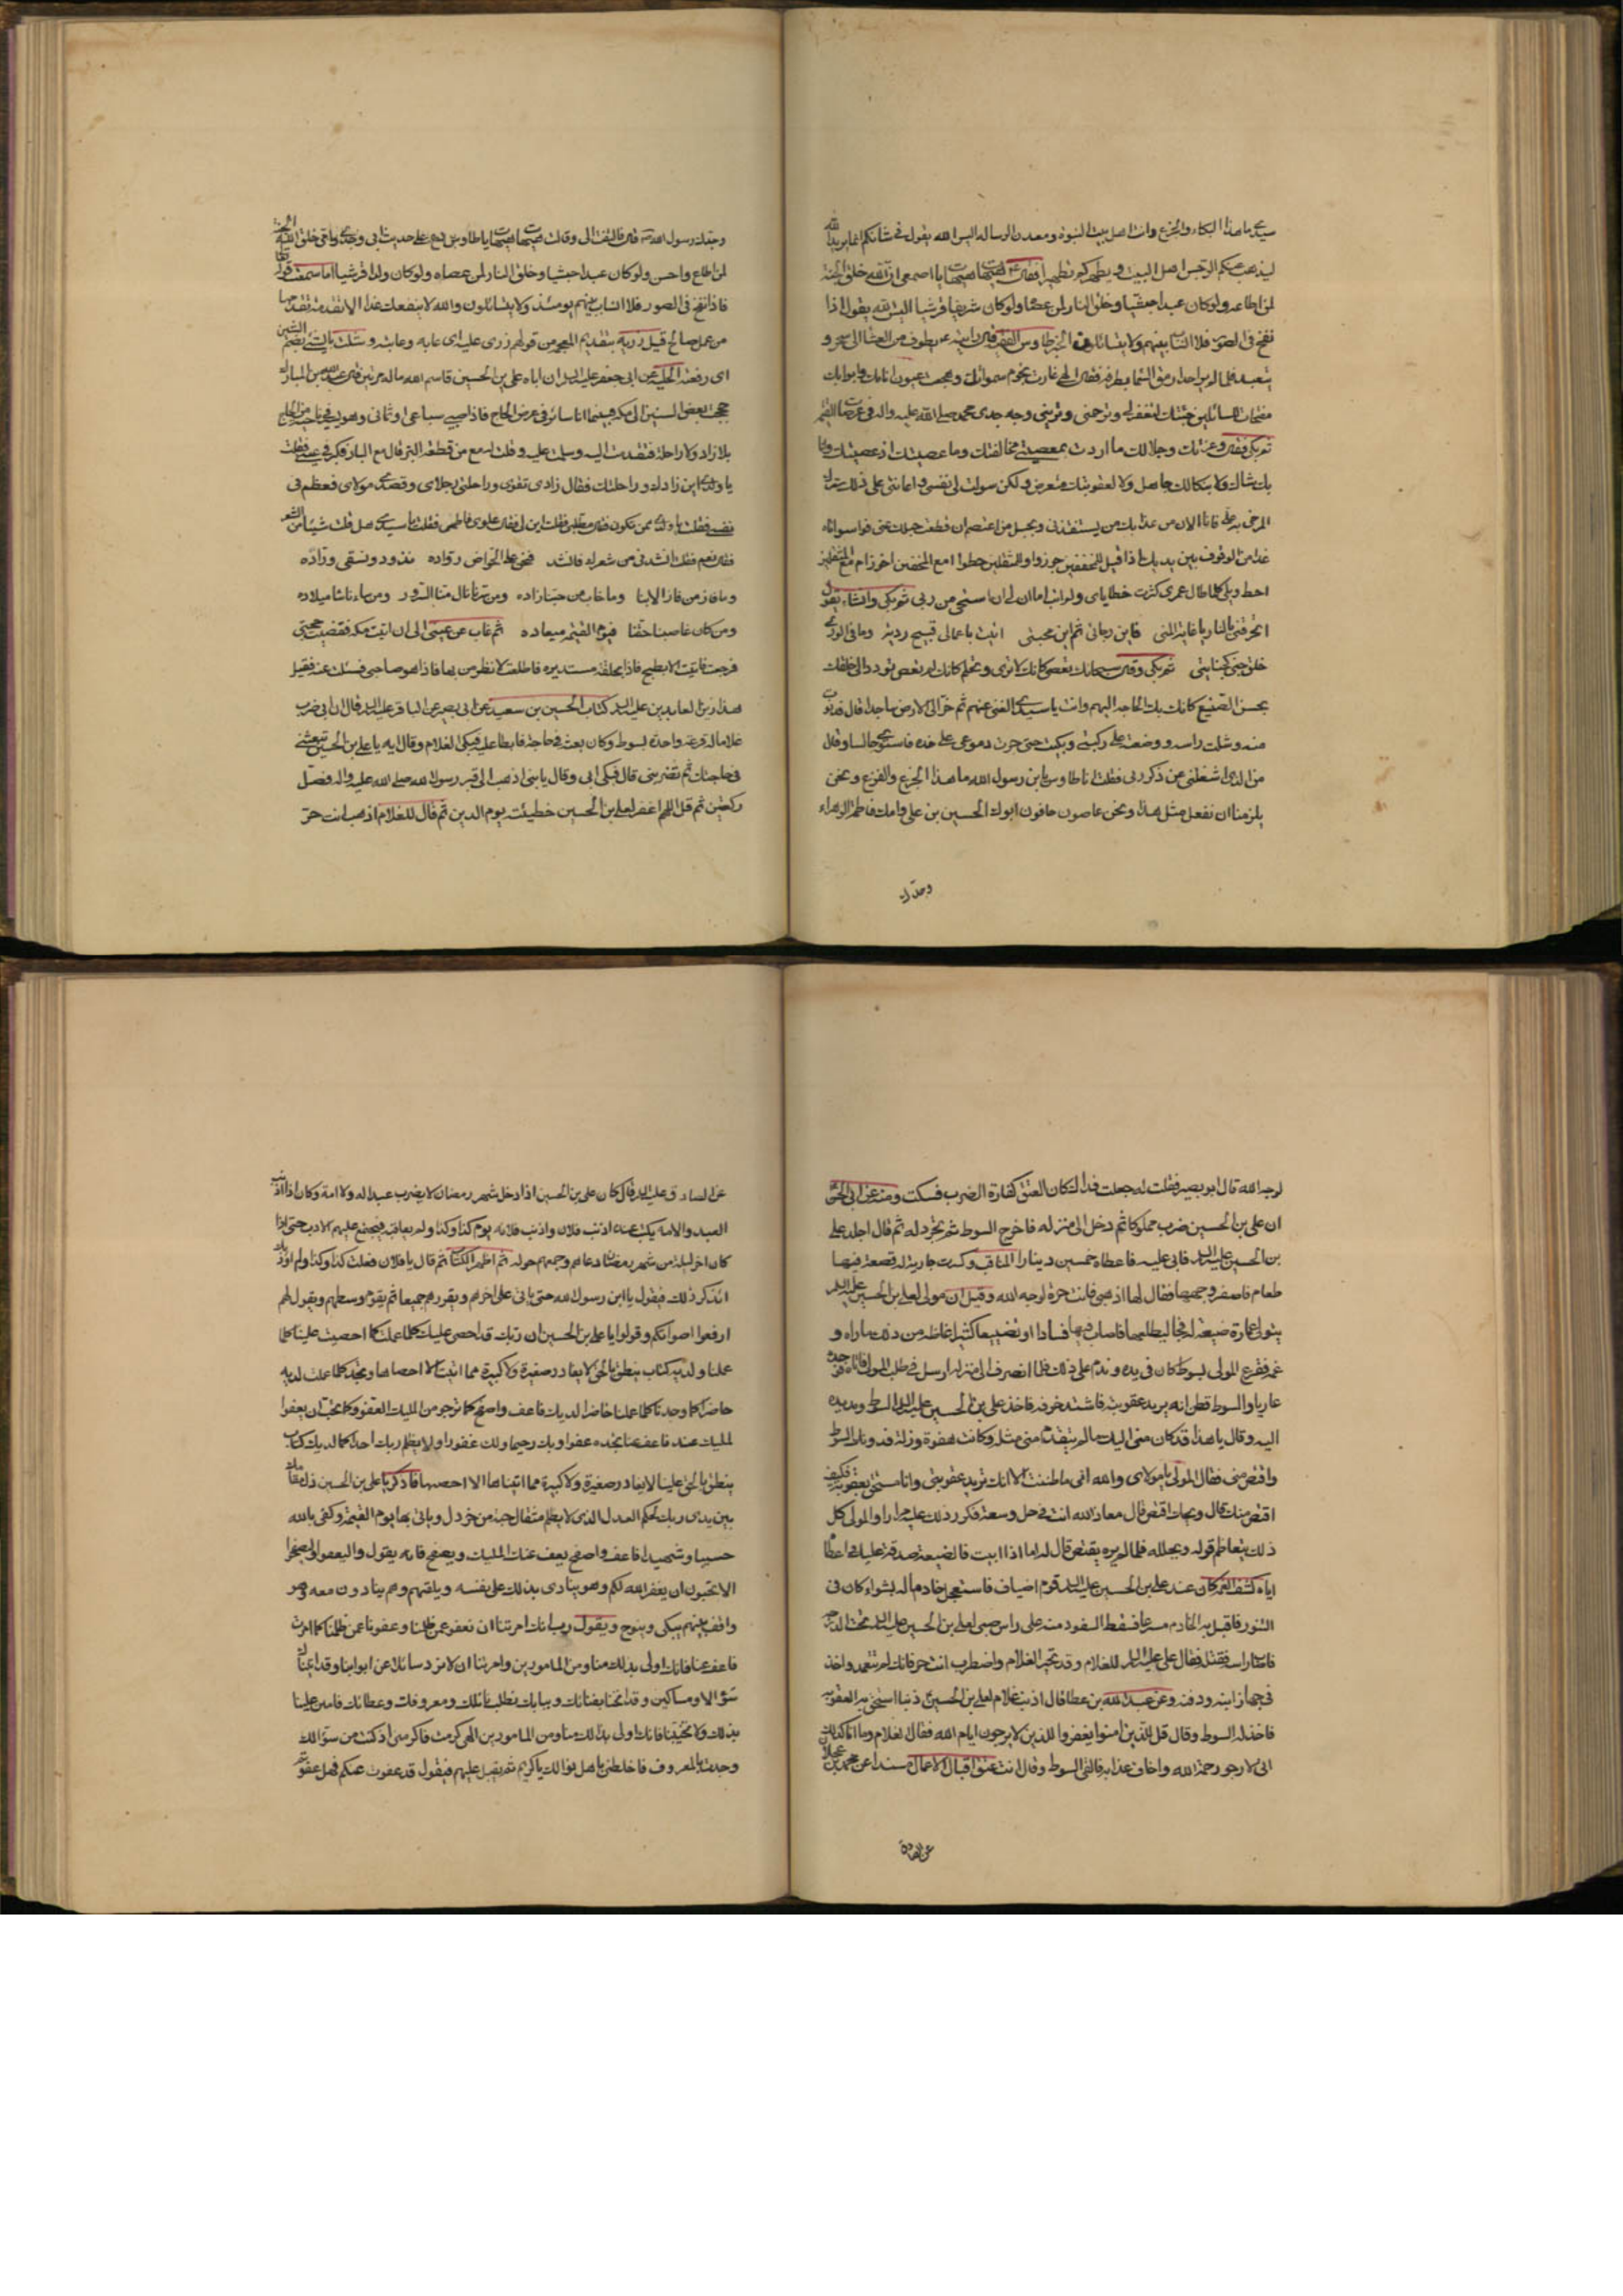 سيدى ما هذا البكاء والجزع وانت اهل بيت النبوة ومعدن الرسالة اليس الله يقول فى شأنكم انما يريد الله
ليذهب عنكم الرجس اهل البيت ويطهركم تطهيرا فقال هيهات هيهات يا اصمعى ان الله خلق الجنة
لمن اطاعه ولو كان عبدا حبشيا وخلق النار لمن عصاه ولو كان شريفا قرشيا اليس الله يقول اذا
نفخ فى الصور فلا انساب بينهم ولا يتسائلون طاوس الفقيه رايته يطوف من العشا الى سحر و
يتعبد فلما لم ير احدا رمق السما بطرفه فقال الهى غارت نجوم سمواتك وهجعت عيون انامك وابوابك
مفتحات للسائلين جئتك لتغفر لى وترحمنى وترينى وجه جدى محمد صلى الله عليه واله فى عرصات القيمة
ثم بكى وقال وعزتك وجلالك ما اردت بمعصيتى مخالفتك وما عصيتك اذ عصيتك وانا
بك شاك ولا بنكالك جاهل ولا لعقوبتك متعرض ولكن سولت لى نفسى واعاننى على ذلك سترك
المرخى به على فانا الان من عذابك من يستنقذنى وبحبل من اعتصم ان قطعت حبلك عنى فواسواتاه
غدا من الوقوف بين يديك اذا قيل للمخفين جوزوا وللمثقلين حطوا امع المخفين اجوز ام مع المثقلين
احط ويلى كلما طال عمرى كثرت خطاياى ولم اتب اما ان لى ان استحى من ربى ثم بكى وانشاء يقول
اتحرقنى بالنار يا غاية المنى فاين رجائى ثم اين محبتى اتيت باعمال قباح ردية وما فى الورى
خلق جنى كجنايتى ثم بكى وقال سبحانك تعصى كانك لا ترى وتحلم كانك لم تعص تتودد الى خلقك
بحسن الصنيع كانك بك الحاجة اليهم وانت يا سيدى الغنى عنهم ثم خر الى الارض ساجدا قال فدنوت
منه وشلت راسه ووضعته على ركبتى وبكيت حتى جرت دموعى على خده فاستوى جالسا وقال
من الذى اشغلنى عن ذكر ربى فقلت انا طاوس يا بن رسول الله ما هذا الجزع والفزع ونحن
يلزمنا ان نفعل مثل هذا ونحن عاصون جافون ابوك الحسين بن على وامك فاطمة الزهراء
وجدك
وجدك رسول الله قال فالتفت الى وقال هيهات هيهات يا طاوس دع عنى حديث ابى وامى وجدى خلق الله الجنة
لمن اطاع واحسن ولو كان عبدا حبشيا وخلق النار لمن عصاه ولو كان ولدا قرشيا اما سمعت قوله تعالى
فاذا نفخ فى الصور فلا انساب بينهم يومئذ ولا يتسائلون والله لا ينفعك غدا الا تقدمة تقدمها
من عمل صالح قيل زرية بتقديم المعجمة من قولهم زرى عليه اى عابه وعاتبه وشلت بالشئ بضم الشين
اى رفعته الحلية عن ابى جعفر عليه السلام ان اباه على بن الحسين قاسم الله ماله مرتين عبد الله بن المبارك
حججت بعض السنين الى مكة فبينما انا سائر فى عرض الحاج فاذا صبى سباعى او ثمانى وهو يسير فى ناحية من الحاج
بلا زاد ولا راحلة فتقدمت اليه وسلمت عليه وقلت له مع من قطعت البر قال مع البار فكبر فى عينى فقلت
يا ولدى اين زادك وراحلتك فقال زادى تقوى وراحلتى رجلاى وقصدى مولاى فعظم فى
نفسى فقلت يا ولدى ممن تكون فقال مطلبى فقلت ابن لى فقال علوى فاطمى فقلت يا سيدى هل قلت شيئا من الشعر
فقال نعم فقلت انشدنى من شعرك فانشد فنحن على الحوض رواده نذود ونسقى وراده
وما فاز من فاز الا بنا وما خاب من حبنا زاده ومن سرنا نال منا السرور ومن ساءنا ساء ميلاده
ومن كان غاصبنا حقنا فيوم القيمة ميعاده ثم غاب عن عينى الى ان اتيت مكة فقضيت حجتى
فرجعت فاتيت الابطح فاذا بحلقة مستديرة فاطلعت لانظر من بها فاذا هو صاحبى فسئلت عنه فقيل
هذا زين العابدين عليه السلام كتاب الحسين بن سعيد عن ابى بصير عن الباقر عليه السلام قال ان ابى ضرب
غلاما له قرعة واحدة بسوط وكان بعثه فى حاجة فابطا عليه فبكى الغلام وقال الله يا على بن الحسين تبعثنى
فى حاجتك ثم تضربنى قال فبكى ابى وقال يا بنى اذهب الى قبر رسول الله صلى الله عليه واله فصل
ركعتين ثم قل اللهم اغفر لعلى بن الحسين خطيئته يوم الدين ثم قال للغلام اذهب انت حر
لوجه الله قال ابو بصير فقلت له جعلت فداك كان العتق كفارة الضرب فسكت ومنه عن ابى الحسن
ان على بن الحسين ضرب مملوكا ثم دخل الى منزله فاخرج السوط ثم تجرد له ثم قال اجلد على
بن الحسين عليه السلام فابى عليه فاعطاه خمسين دينارا المناقب وكسرت جارية له قصعة فيها
طعام فاصفر وجهها فقال لها اذهبى فانت حرة لوجه الله وقيل ان مولى لعلى بن الحسين عليه السلام
يتولى عمارة ضيعة له فجاء ليطلعها فاصاب فيها فسادا وتضييعا كثيرا غاظه من ذلك ما راه و
غمه فقرع المولى بسوط كان فى يده وندم على ذلك فلما انصرف الى منزله ارسل فى طلب المولى فاتاه فوجده
عاريا والسوط فظن انه يريد عقوبته فاشتد خوفه فاخذ على بن الحسين عليه السلام السوط ومد يده
اليه وقال يا هذا قد كان منى اليك ما لم يتقدم منى مثله وكانت هفوة وزلة فدونك السوط
واقتص منى فقال المولى يا مولاى والله انى ما ظننت الا انك تريد عقوبتى وانا مستحق للعقوبة فكيف
اقتص منك قال ويحك اقتص قال معاذ الله انت فى حل وسعة فكرر ذلك عليه مرارا والمولى كل
ذلك يتعاظم قوله ويجلله فلما لم يره يقتص قال له اما اذا ابيت فالضيعة صدقة عليك واعطاه
اياه كشف الغمة كان عند على بن الحسين عليه السلام قوم اضياف فاستعجل خادما له بشواء كان فى
التنور فاقبل به الخادم مسرعا فسقط السفود منه على راس صبى لعلى بن الحسين عليه السلام تحت الدرجة
فاصاب راسه فقتله فقال على عليه السلام للغلام وقد تحير الغلام واضطرب انت حر فانك لم تتعمد واخذ
فى جهاز ابنه ودفنه وعن عبد الله بن عطا قال اذنب غلام لعلى بن الحسين ذنبا استحق به العقوبة
فاخذ له السوط وقال قل للذين امنوا يغفروا للذين لا يرجون ايام الله فقال الغلام وما انا كذلك
انى لارجو رحمة الله واخاف عذابه فالقى السوط وقال انت عتيق اقبال الاعمال مسندا عن محمد بن عجلان
عن الصادق
عن الصادق عليه السلام قال كان على بن الحسين اذا دخل شهر رمضان لا يضرب عبدا له ولا امة وكان اذا اذنب
العبد والامة يكتب عنده اذنب فلان واذنب فلانة يوم كذا وكذا ولم يعاقبه فيجتمع عليهم الادب حتى اذا
كان اخر ليلة من شهر رمضان دعاهم وجمعهم حوله ثم اظهر الكتاب ثم قال يا فلان فعلت كذا وكذا ولم اؤدبك
اتذكر ذلك فيقول يا ابن رسول الله حتى ياتى على اخرهم ويقررهم جميعا ثم يقوم وسطهم ويقول لهم
ارفعوا اصواتكم وقولوا يا على بن الحسين ان ربك قد احصى عليك كلما عملت كما احصيت علينا كلما
عملنا ولديه كتاب ينطق بالحق لا يغادر صغيرة ولا كبيرة مما اتيت الا احصاها وتجد كلما عملت لديه
حاضرا كما وجدنا كلما عملنا حاضرا لديك فاعف واصفح كما ترجو من المليك العفو وكما تحب ان يعفو
المليك عنك فاعف عنا تجده عفوا وبك رحيما ولك غفورا ولا يظلم ربك احدا كما لديك كتاب
ينطق بالحق علينا لا يغادر صغيرة ولا كبيرة مما اتيناها الا احصيها فاذكر يا على بن الحسين ذل مقامك
بين يدى ربك الحكم العدل الذى لا يظلم مثقال حبة من خردل وياتى بها يوم القيمة وكفى بالله
حسيبا وشهيدا فاعف واصفح يعف عنك المليك ويصفح فانه يقول وليعفوا وليصفحوا
الا تحبون ان يغفر الله لكم وهو ينادى بذلك على نفسه ويلقنهم وهم ينادون معه وهو
واقف بينهم يبكى وينوح ويقول رب انك امرتنا ان نعفو عمن ظلمنا وعفونا عمن ظلمنا كما امرت
فاعف عنا فانك اولى بذلك منا ومن المامورين وامرتنا ان لا نرد سائلا عن ابوابنا وقد اتيناك
سؤالا ومساكين وقد انخنا بفنائك وببابك نطلب نائلك ومعروفك وعطائك فامنن علينا
بذلك ولا تخيبنا فانك اولى بذلك منا ومن المامورين الهى كرمت فاكرمنى اذ كنت من سؤالك
وجدت بالمعروف فاخلطنى باهل نوالك يا كريم ثم يقبل عليهم فيقول قد عفوت عنكم فهل عفوتم